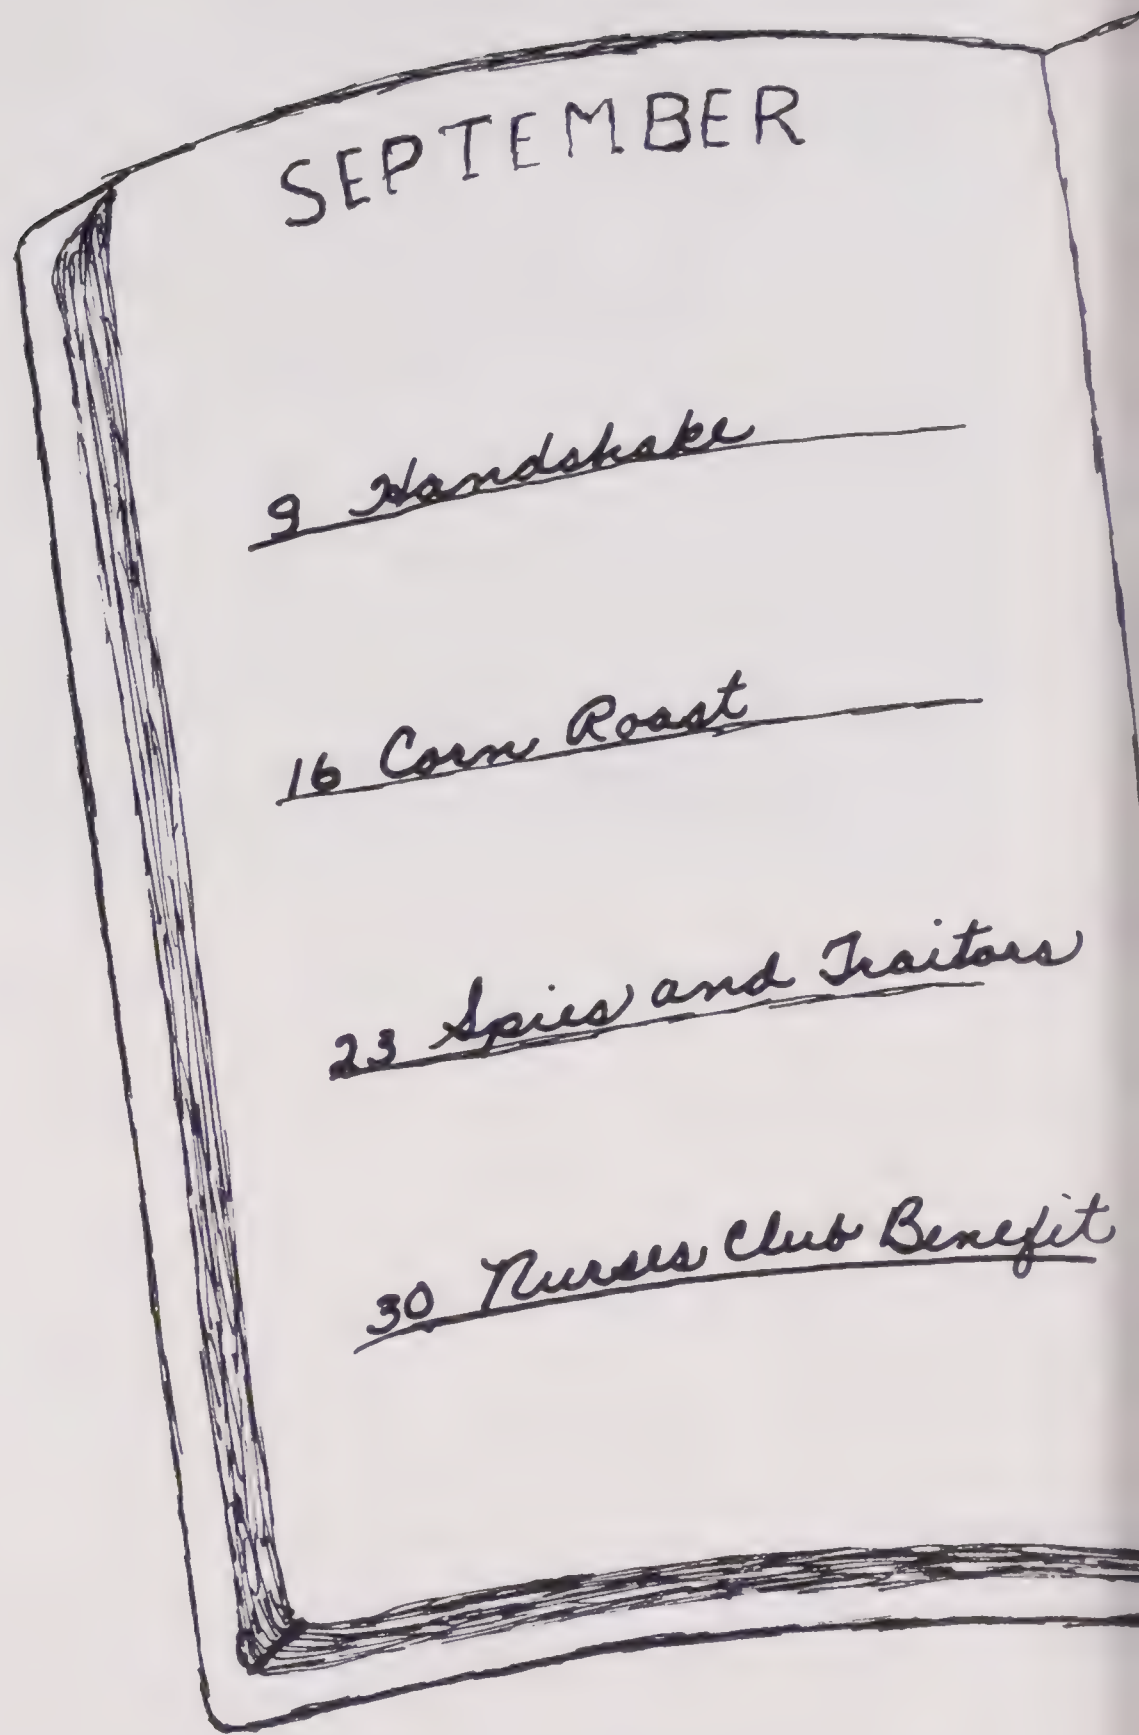 SEPTEMBER
9 Handshake
16 Corn Roast
23 Spies and Traitors
30 Nurses Club Benefit